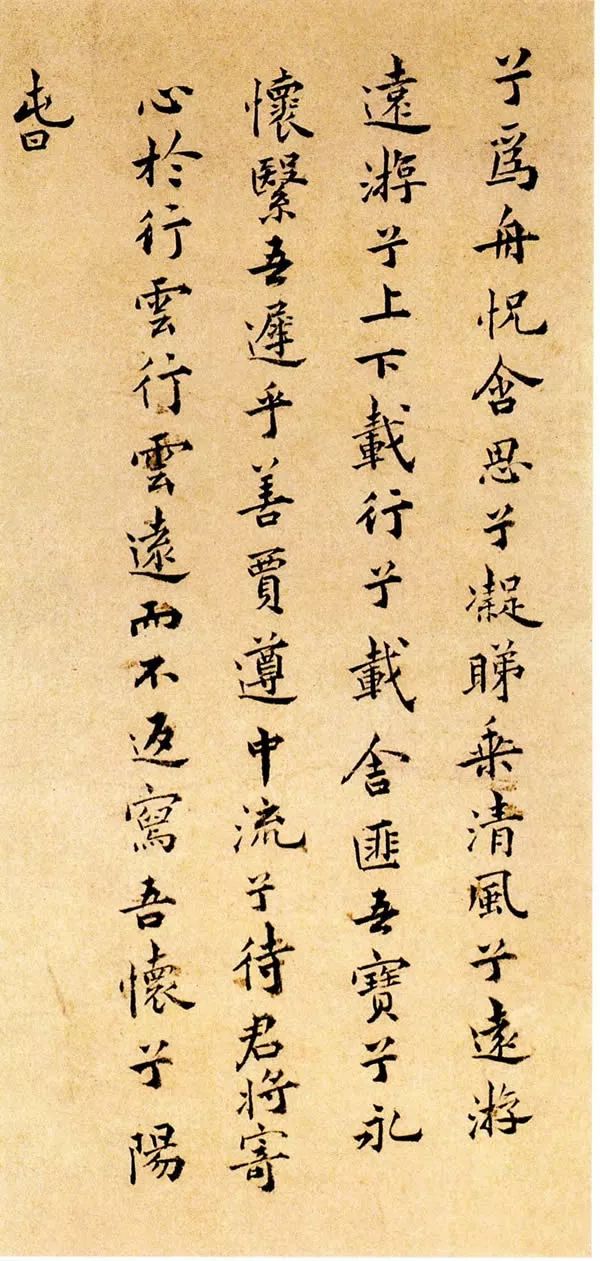 兮爲舟怳含思兮凝睇乘清風兮遠游
遠游兮上下載行兮載舍匪吾寶兮永
懷繄吾遲乎善賈遵中流兮待君將寄
心於行雲行雲遠而不返寫吾懷兮陽
旾